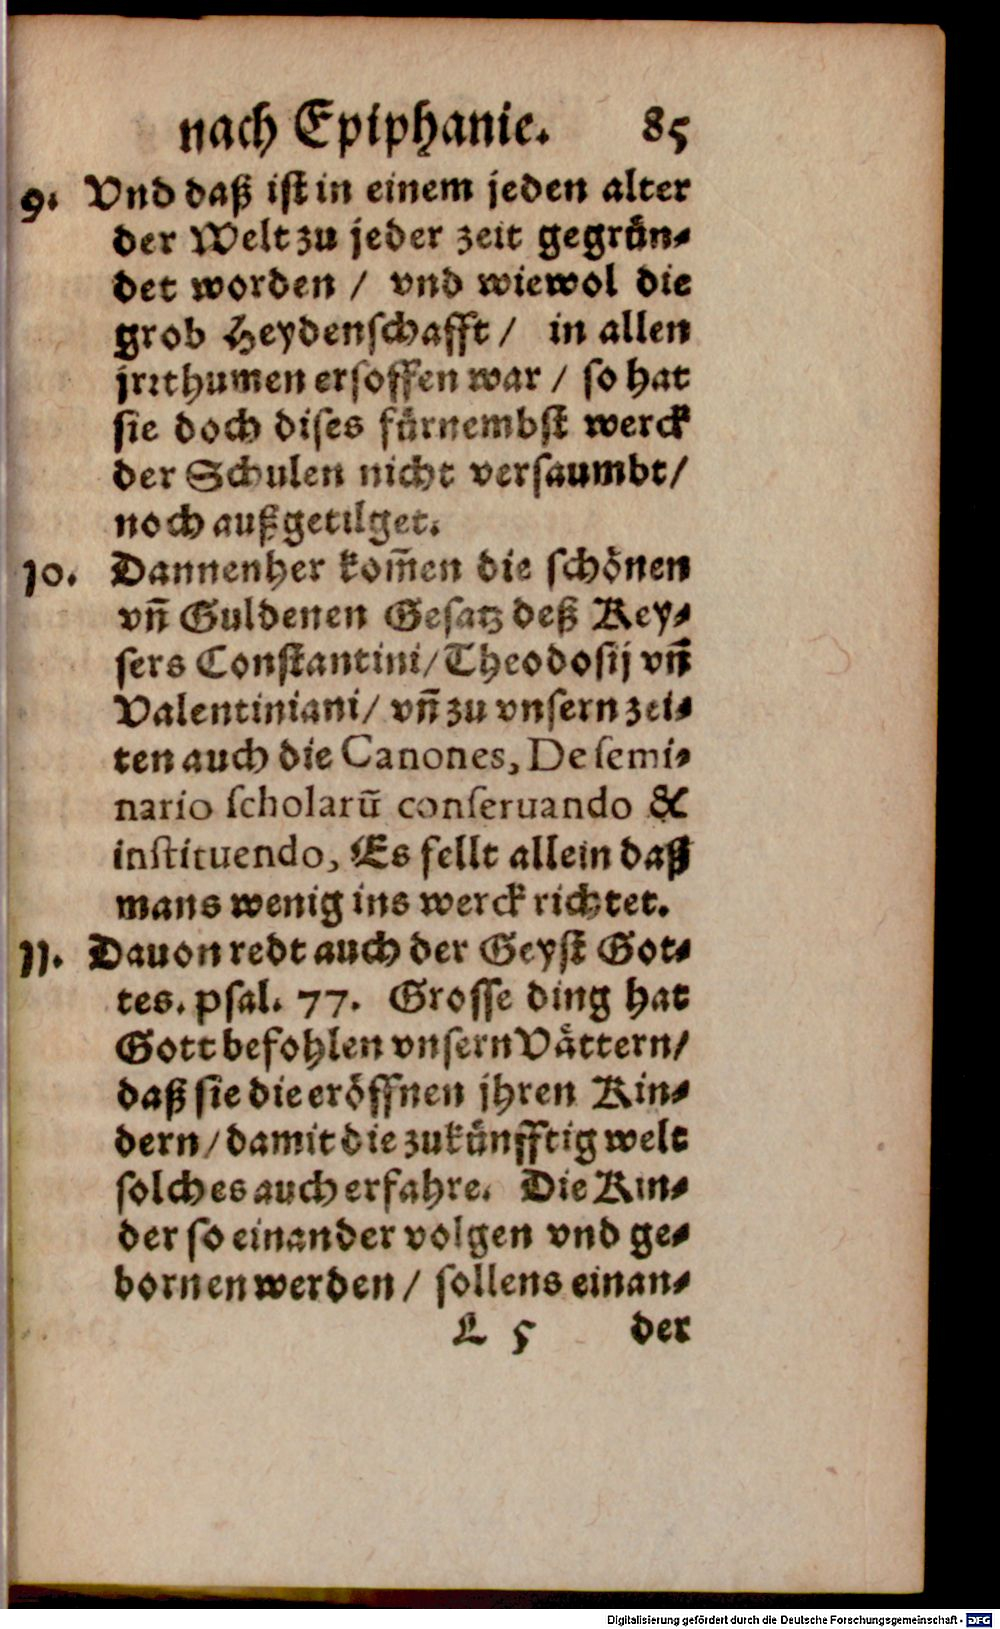 nach Epiphanie. 85
9. Vnd daß ist in einem jeden alter
der Welt zu jeder zeit gegrün-
det worden / vnd wiewol die
grob Heydenschafft / in allen
jrrthumen ersoffen war / so hat
sie doch dises fürnembst werck
der Schulen nicht versaumbt /
noch außgetilget.
10. Dannenher kom̃en die schönen
vñ Guldenen Gesatz deß Key-
sers Constantini / Theodosij vñ
Valentiniani / vñ zu vnsern zei-
ten auch die Canones, De semi-
nario scholarũ conseruando &
instituendo, Es fellt allein daß
mans wenig ins werck richtet.
11. Dauon redt auch der Geyst Got-
tes. psal. 77. Grosse ding hat
Gott befohlen vnsern Vättern /
daß sie die eröffnen jhren Kin-
dern / damit die zukünfftig welt
solches auch erfahre. Die Kin-
der so einander volgen vnd ge-
bornen werden / sollens einan-
L 5 der
Digitalisierung gefördert durch die Deutsche Forschungsgemeinschaft - DFG